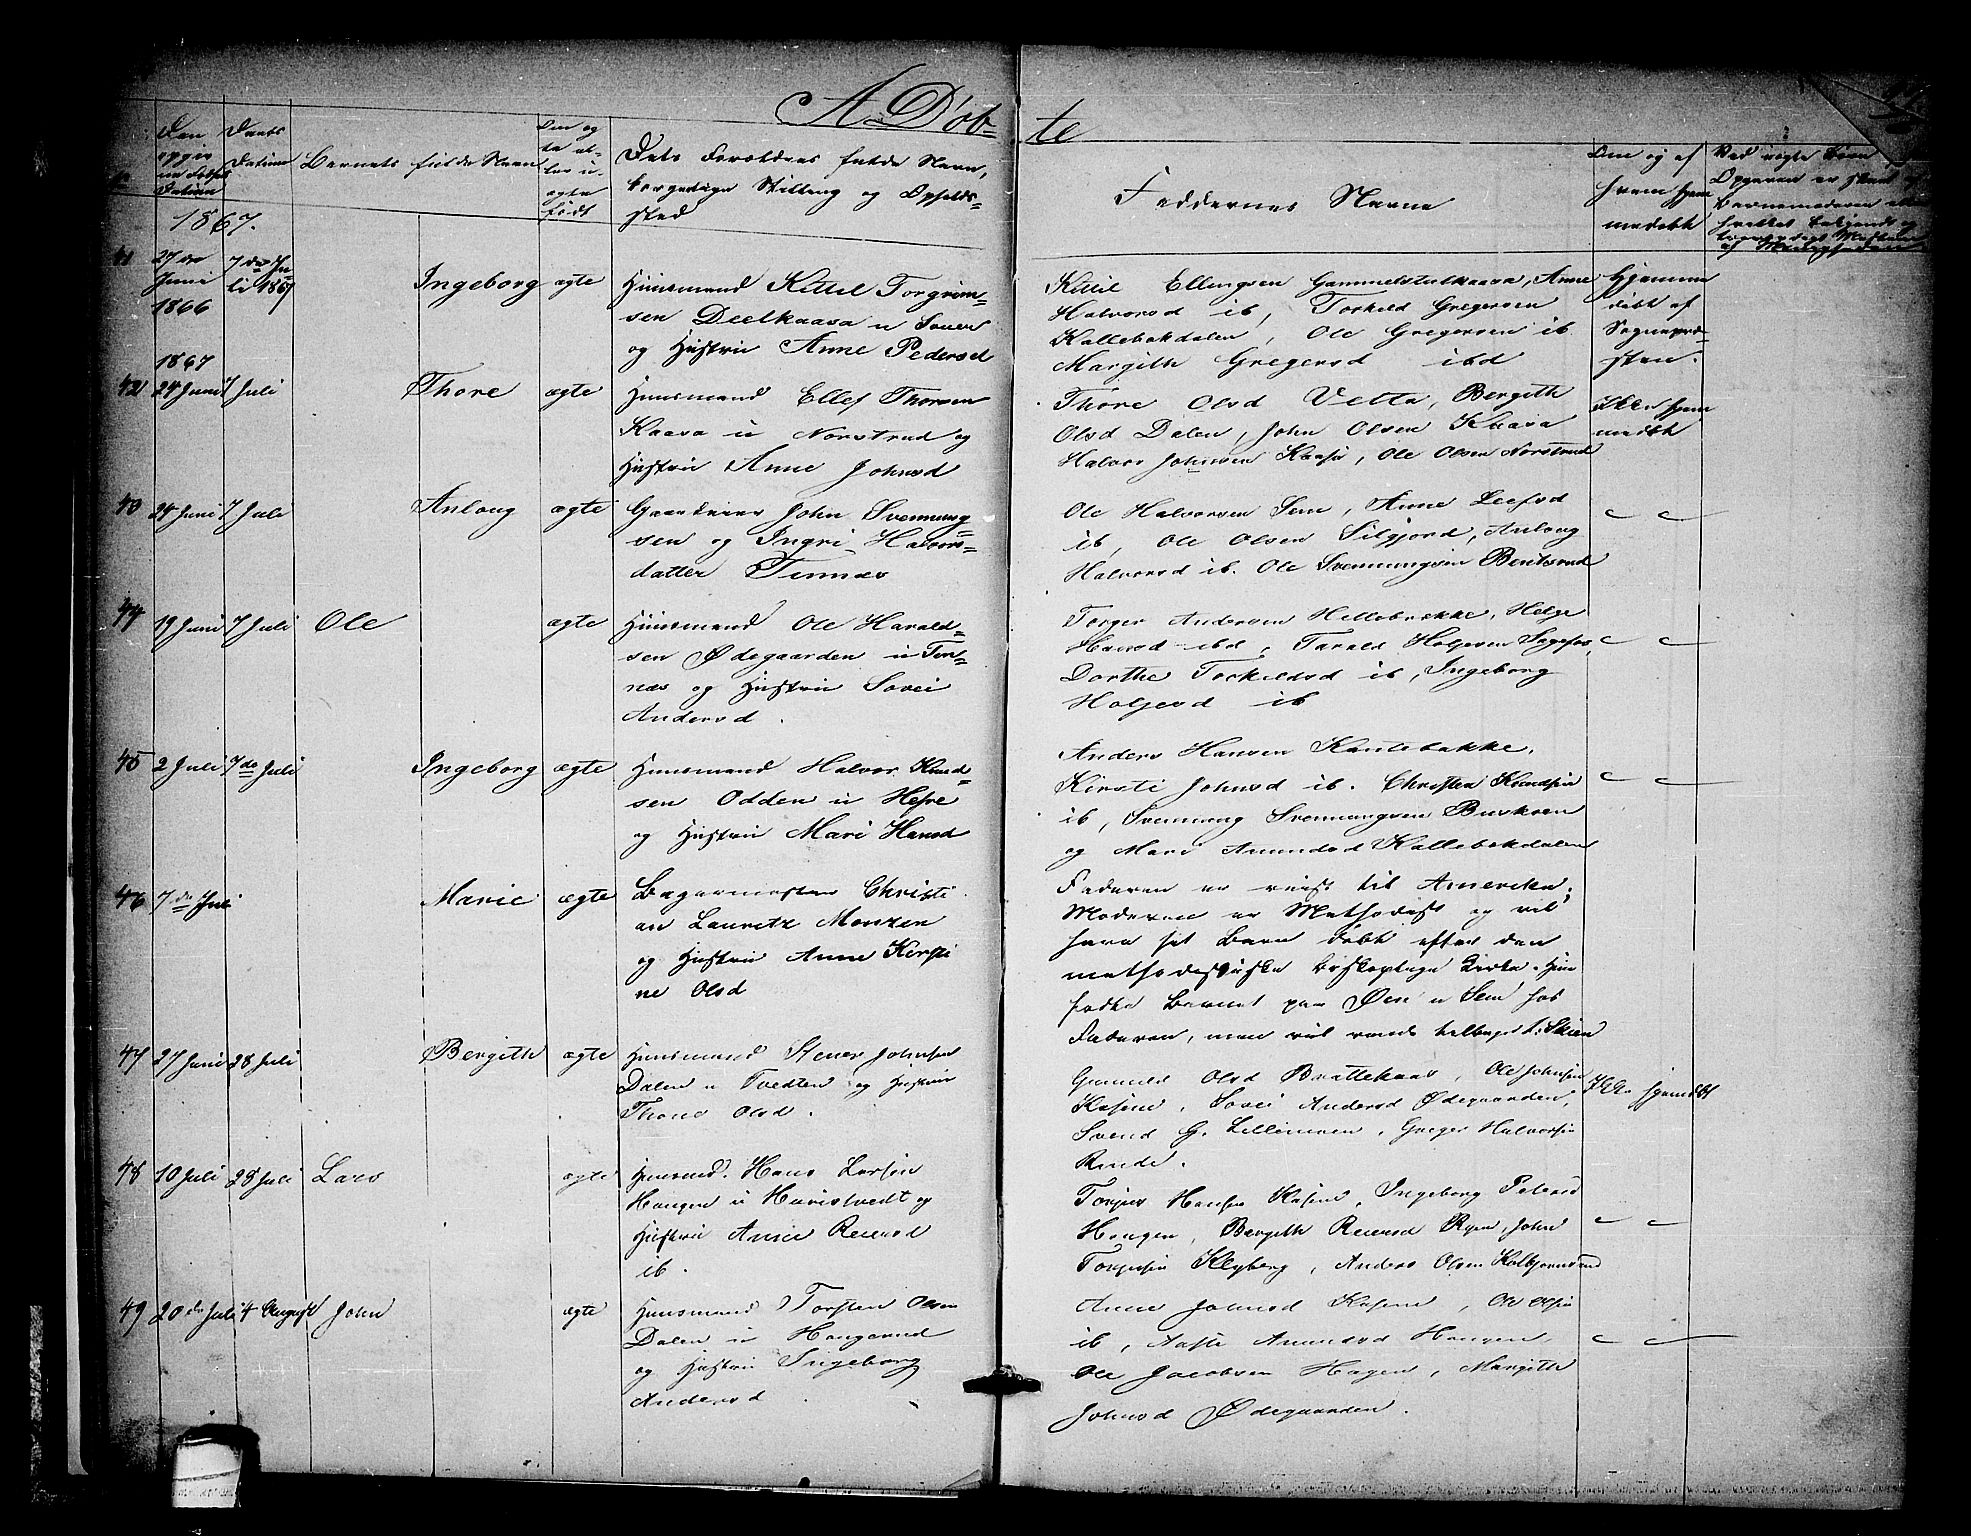 A Døb=
te
Den opgivne Fødsels Datum
Daabs Datum
Barnets fulde Navn
Om ægte eller uægte født
Dets Forældres fulde Navn, borgerlige Stilling og Opholds=sted
Faddernes Navne
Om og af hvem hjemmedøbt
1867.
41
27de Juni 1866
7de Juli 1867
Ingeborg
ægte
Huusmand Kittil Torgrim=
sen Deelkaasa u Sauer
og Hustru Anne Pedersd
Kittil Ellingsen Gammelstulkaasa, Anne
Halvorsd ib, Torkild Gregersen
Kallebækdalen, Ole Gregersen ib
Margith Gregersd ibd
Hjemme
døbt af
Sognepræ=
sten.
1867
42
24 Juni
7 Juli
Thore
ægte
Huusmand Ellef Thorsen
Kaasa u Norstrud og
Hustru Anne Johnsd
Thore Olsd Velta, Bergith
Olsd Dalen, John Olsen Kaasa
Halvor Johnsen Kaasa, Ole Olsen Norstrud
Ikke hjem
medøbt
43
24 Juni
7 Juli
Anlaug
ægte
Gaardeier John Svennung=
sen og Ingri Halvors=
datter Tinnæs
Ole Halvorsen Sem, Anne Leefsd
ib, Ole Olsen Silgjord, Anlaug
Halvorsd ib. Ole Svennungsen Bentsrud
44
19 Juni
7 Juli
Ole
ægte
Huusmand Ole Harald=
sen Ødegaarden u Tin=
næs og Hustru Sovei
Andersd.
Torger Andersen Hellebrække, Helge
Hansd ibd, Tarald Holjesen Ingefos,
Dorthe Torkildsd ib, Ingeborg
Holjesd ib
45
2 Juli
7de Juli
Ingeborg
ægte
Huusmand Halvor Knud=
sen Odden u Hefre
og Hustru Mari Hansd
Anders Hansen Kantebakke,
Kirsti Johnsd ib. Christen Knudsen
ib, Svennung Svennungsen Buskeen
og Mari Amundsd Kallebækdalen
46
7de Juli
Marie
ægte
Bagermester Christi
an Lauritz Monsen
og Hustru Anne Kirsti
ne Olsd
Faderen er reist til Amerika.
Moderen er Methodist og vil
have sit Barn døbt efter den
methodistiske biskopelige Kirke. Hun
fødte Barnet paa Øen u Sem hos
Faderen, men vil reise tilbage t. Skien
47
27 Juni
28 Juli
Bergith
ægte
Huusmand Stener Johnsen
Dalen u Tvedten og Hustru
Thone Olsd.
Gunild Olsd Brattekaas, Ole Johnsen
Kasene, Sovei Andersd Ødegaarden,
Svend G. Lillemoen, Greger Halvorsen
Rinde.
Ikke hjemdbt
48
10 Juli
28 Juli
Lars
ægte
Huusmd. Hans Larsen
Haugen u Haavistvedt og
Hustru Anne Reiersd
ib.
Torjus Hansen Kasene, Ingeborg Petersd
Haugen, Bergith Reiersd Ryen, John
Torjusen Klyberg, Anders Olsen Kolbjørnsrud
49
20de Juli
4 August
John
ægte
Huusmand Torsten Olsen
Dalen u Haugerud
og Hustru Ingeborg
Andersd.
Anne Johnsd Kasene, Ole Olsen
ib, Aaste Amundsd Haugen
Ole Jacobsen Hagen, Margith
Johnsd Ødegaarden.